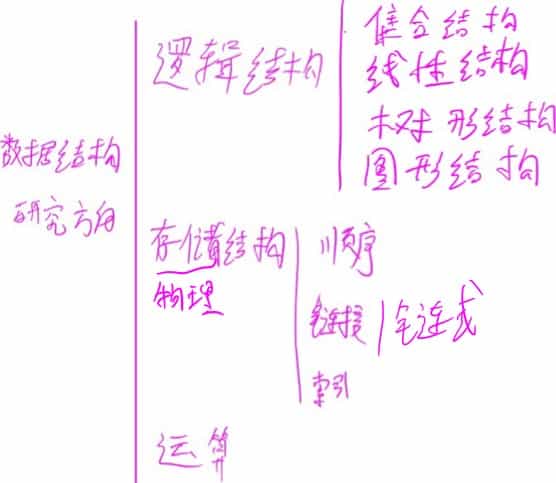 数据结构
研究方向
逻辑结构
集合结构
线性结构
树形结构
图形结构
存储结构
物理
顺序
链接 链式
索引
运算